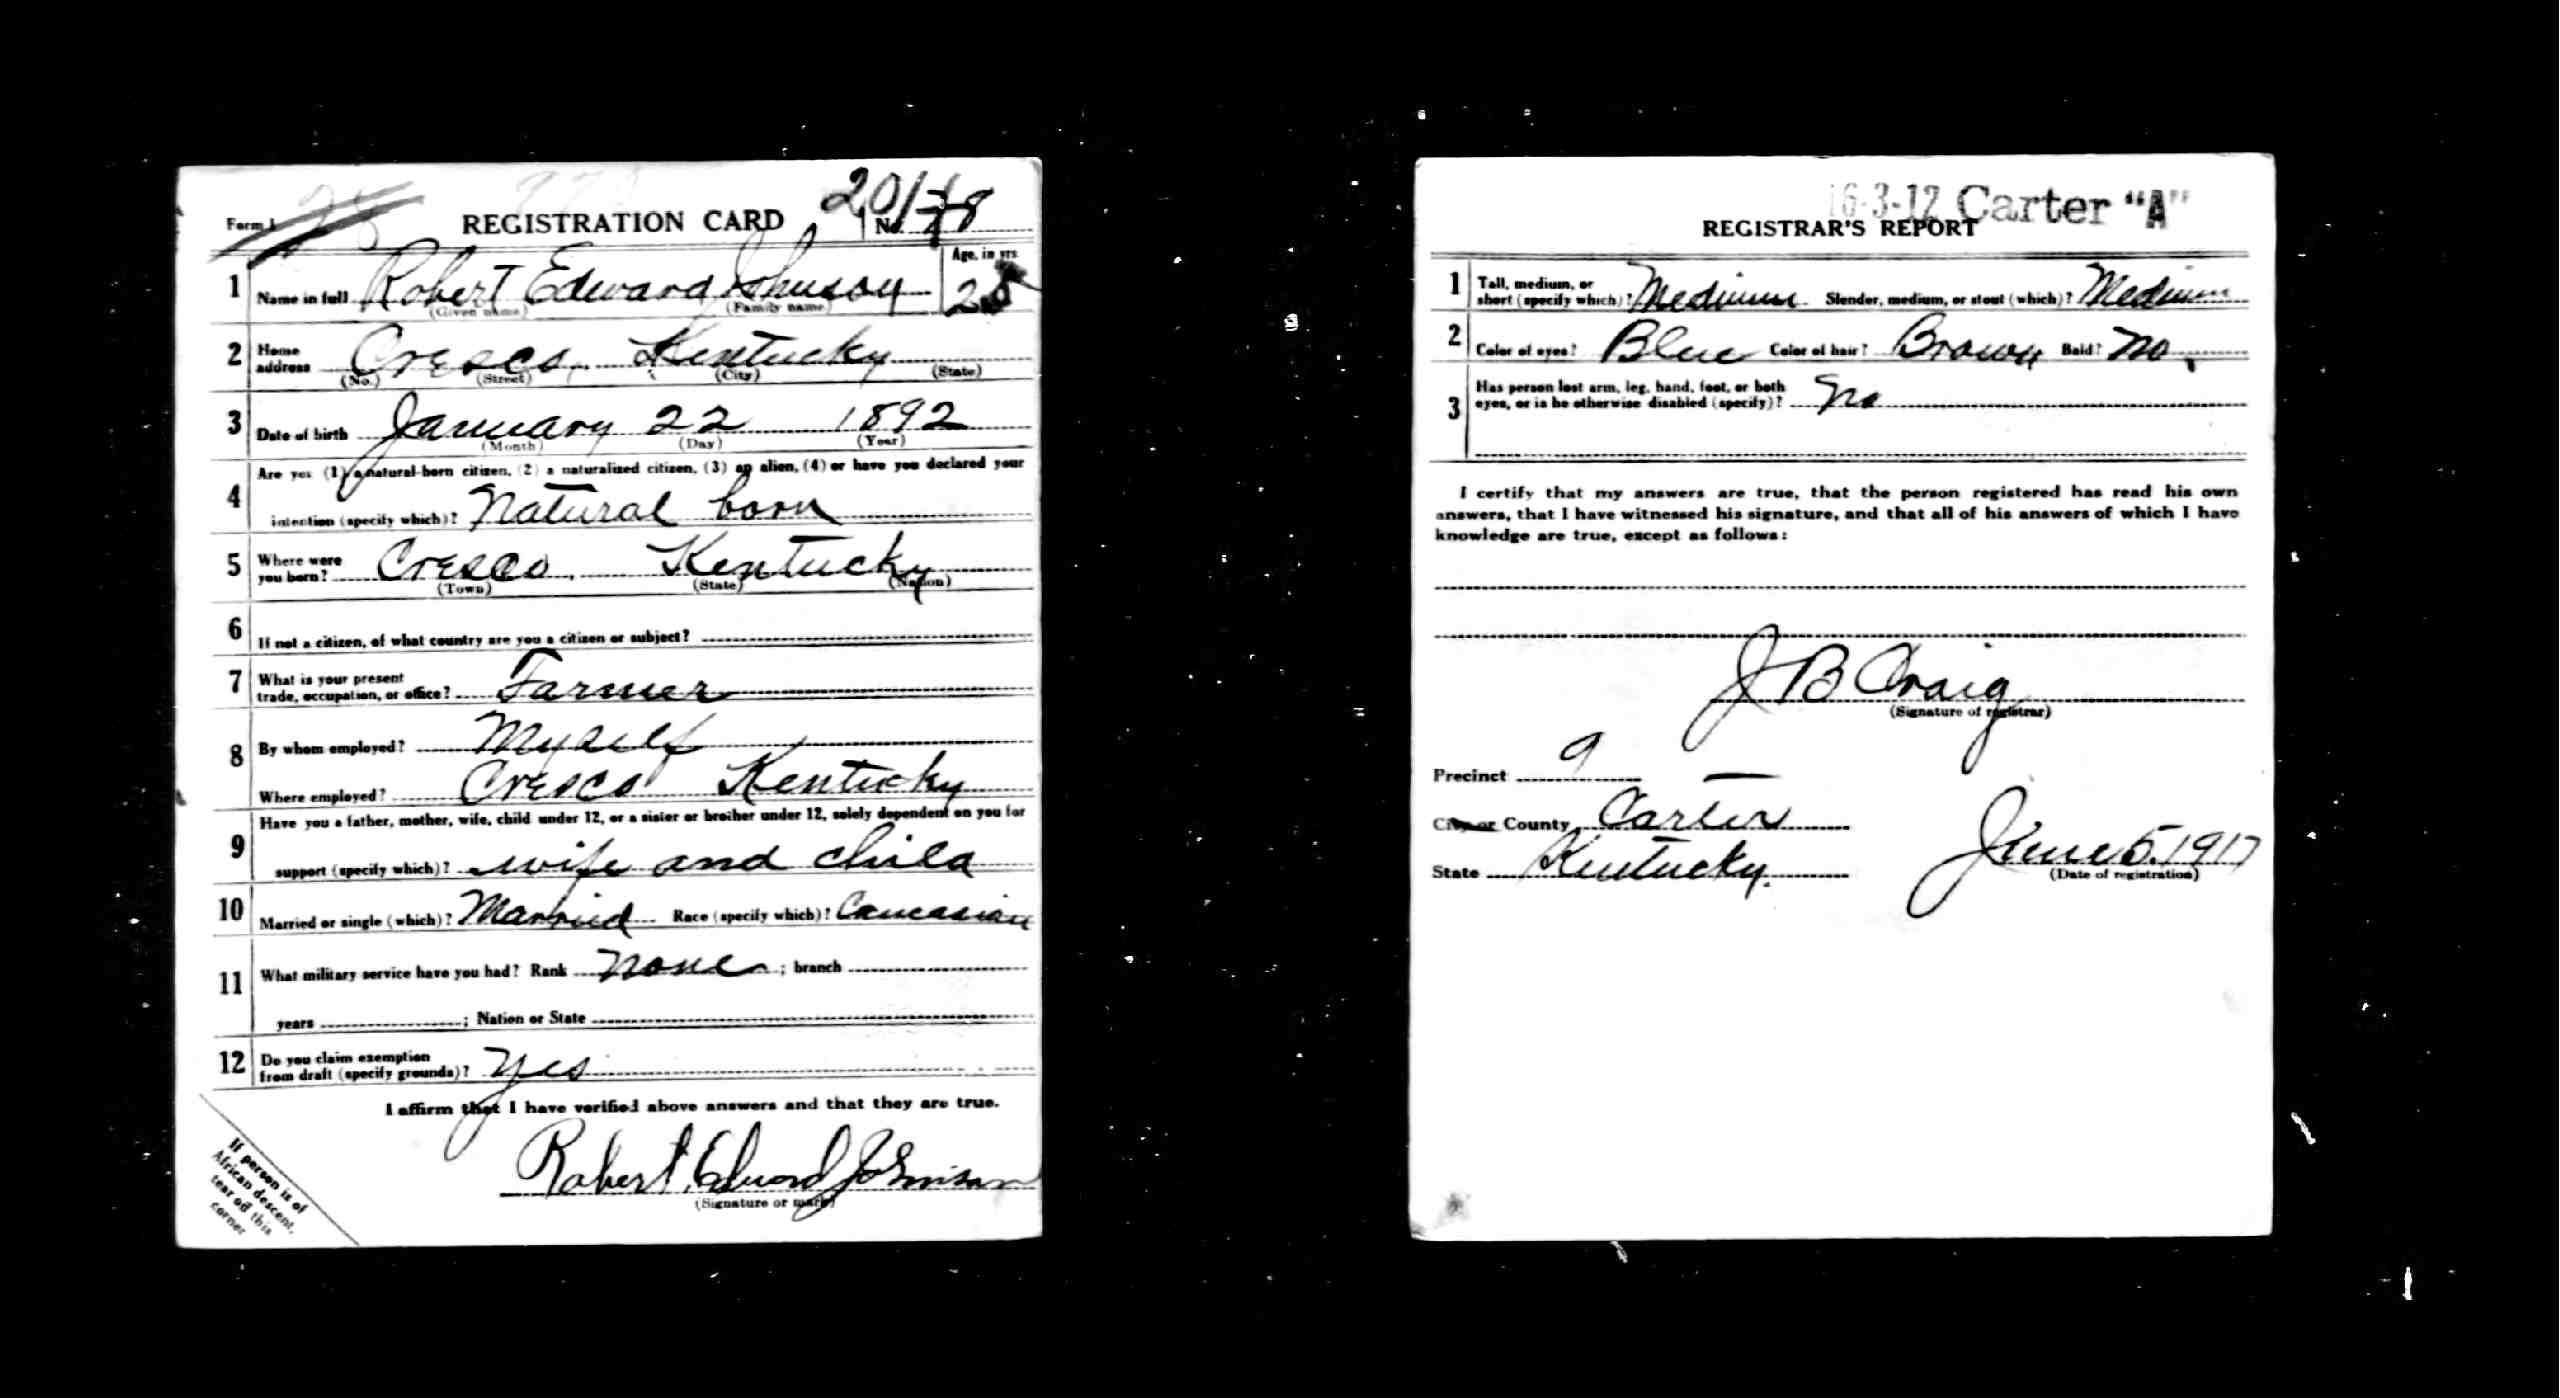 Form 1 REGISTRATION CARD No.
1 Name in full Robert Edward Johnson Age, in yrs.
(Given name) (Family name)
2 Home address Cresco, Kentucky
(No.) (Street) (City) (State)
3 Date of birth January 22 1892
(Month) (Day) (Year)
Are you (1) a natural-born citizen, (2) a naturalized citizen, (3) an alien, (4) or have you declared your
4 intention (specify which)? Natural born
5 Where were you born? Cresco, Kentucky
(Town) (State) (Nation)
6 If not a citizen, of what country are you a citizen or subject?
7 What is your present
trade, occupation, or office? Farmer
8 By whom employed? Myself
Where employed? Cresco Kentucky
Have you a father, mother, wife, child under 12, or a sister or brother under 12, solely dependent on you for
9 support (specify which)? wife and child
10 Married or single (which)? Married Race (specify which)? Caucasian
11 What military service have you had? Rank none ; branch
years ; Nation or State
12 Do you claim exemption
from draft (specify grounds)? Yes
I affirm that I have verified above answers and that they are true.
Robert Edward Johnson
(Signature or mark)
If person is of
African descent,
tear off this
corner
16-3-12 Carter "A"
REGISTRAR'S REPORT
1 Tall, medium, or
short (specify which)? Medium Slender, medium, or stout (which)? Medium
2 Color of eyes? Blue Color of hair? Brown Bald? No
3 Has person lost arm, leg, hand, foot, or both
eyes, or is he otherwise disabled (specify)? No
I certify that my answers are true, that the person registered has read his own
answers, that I have witnessed his signature, and that all of his answers of which I have
knowledge are true, except as follows:
J B Craig
(Signature of registrar)
Precinct 9
City or County Carter
State Kentucky. June 5, 1917
(Date of registration)